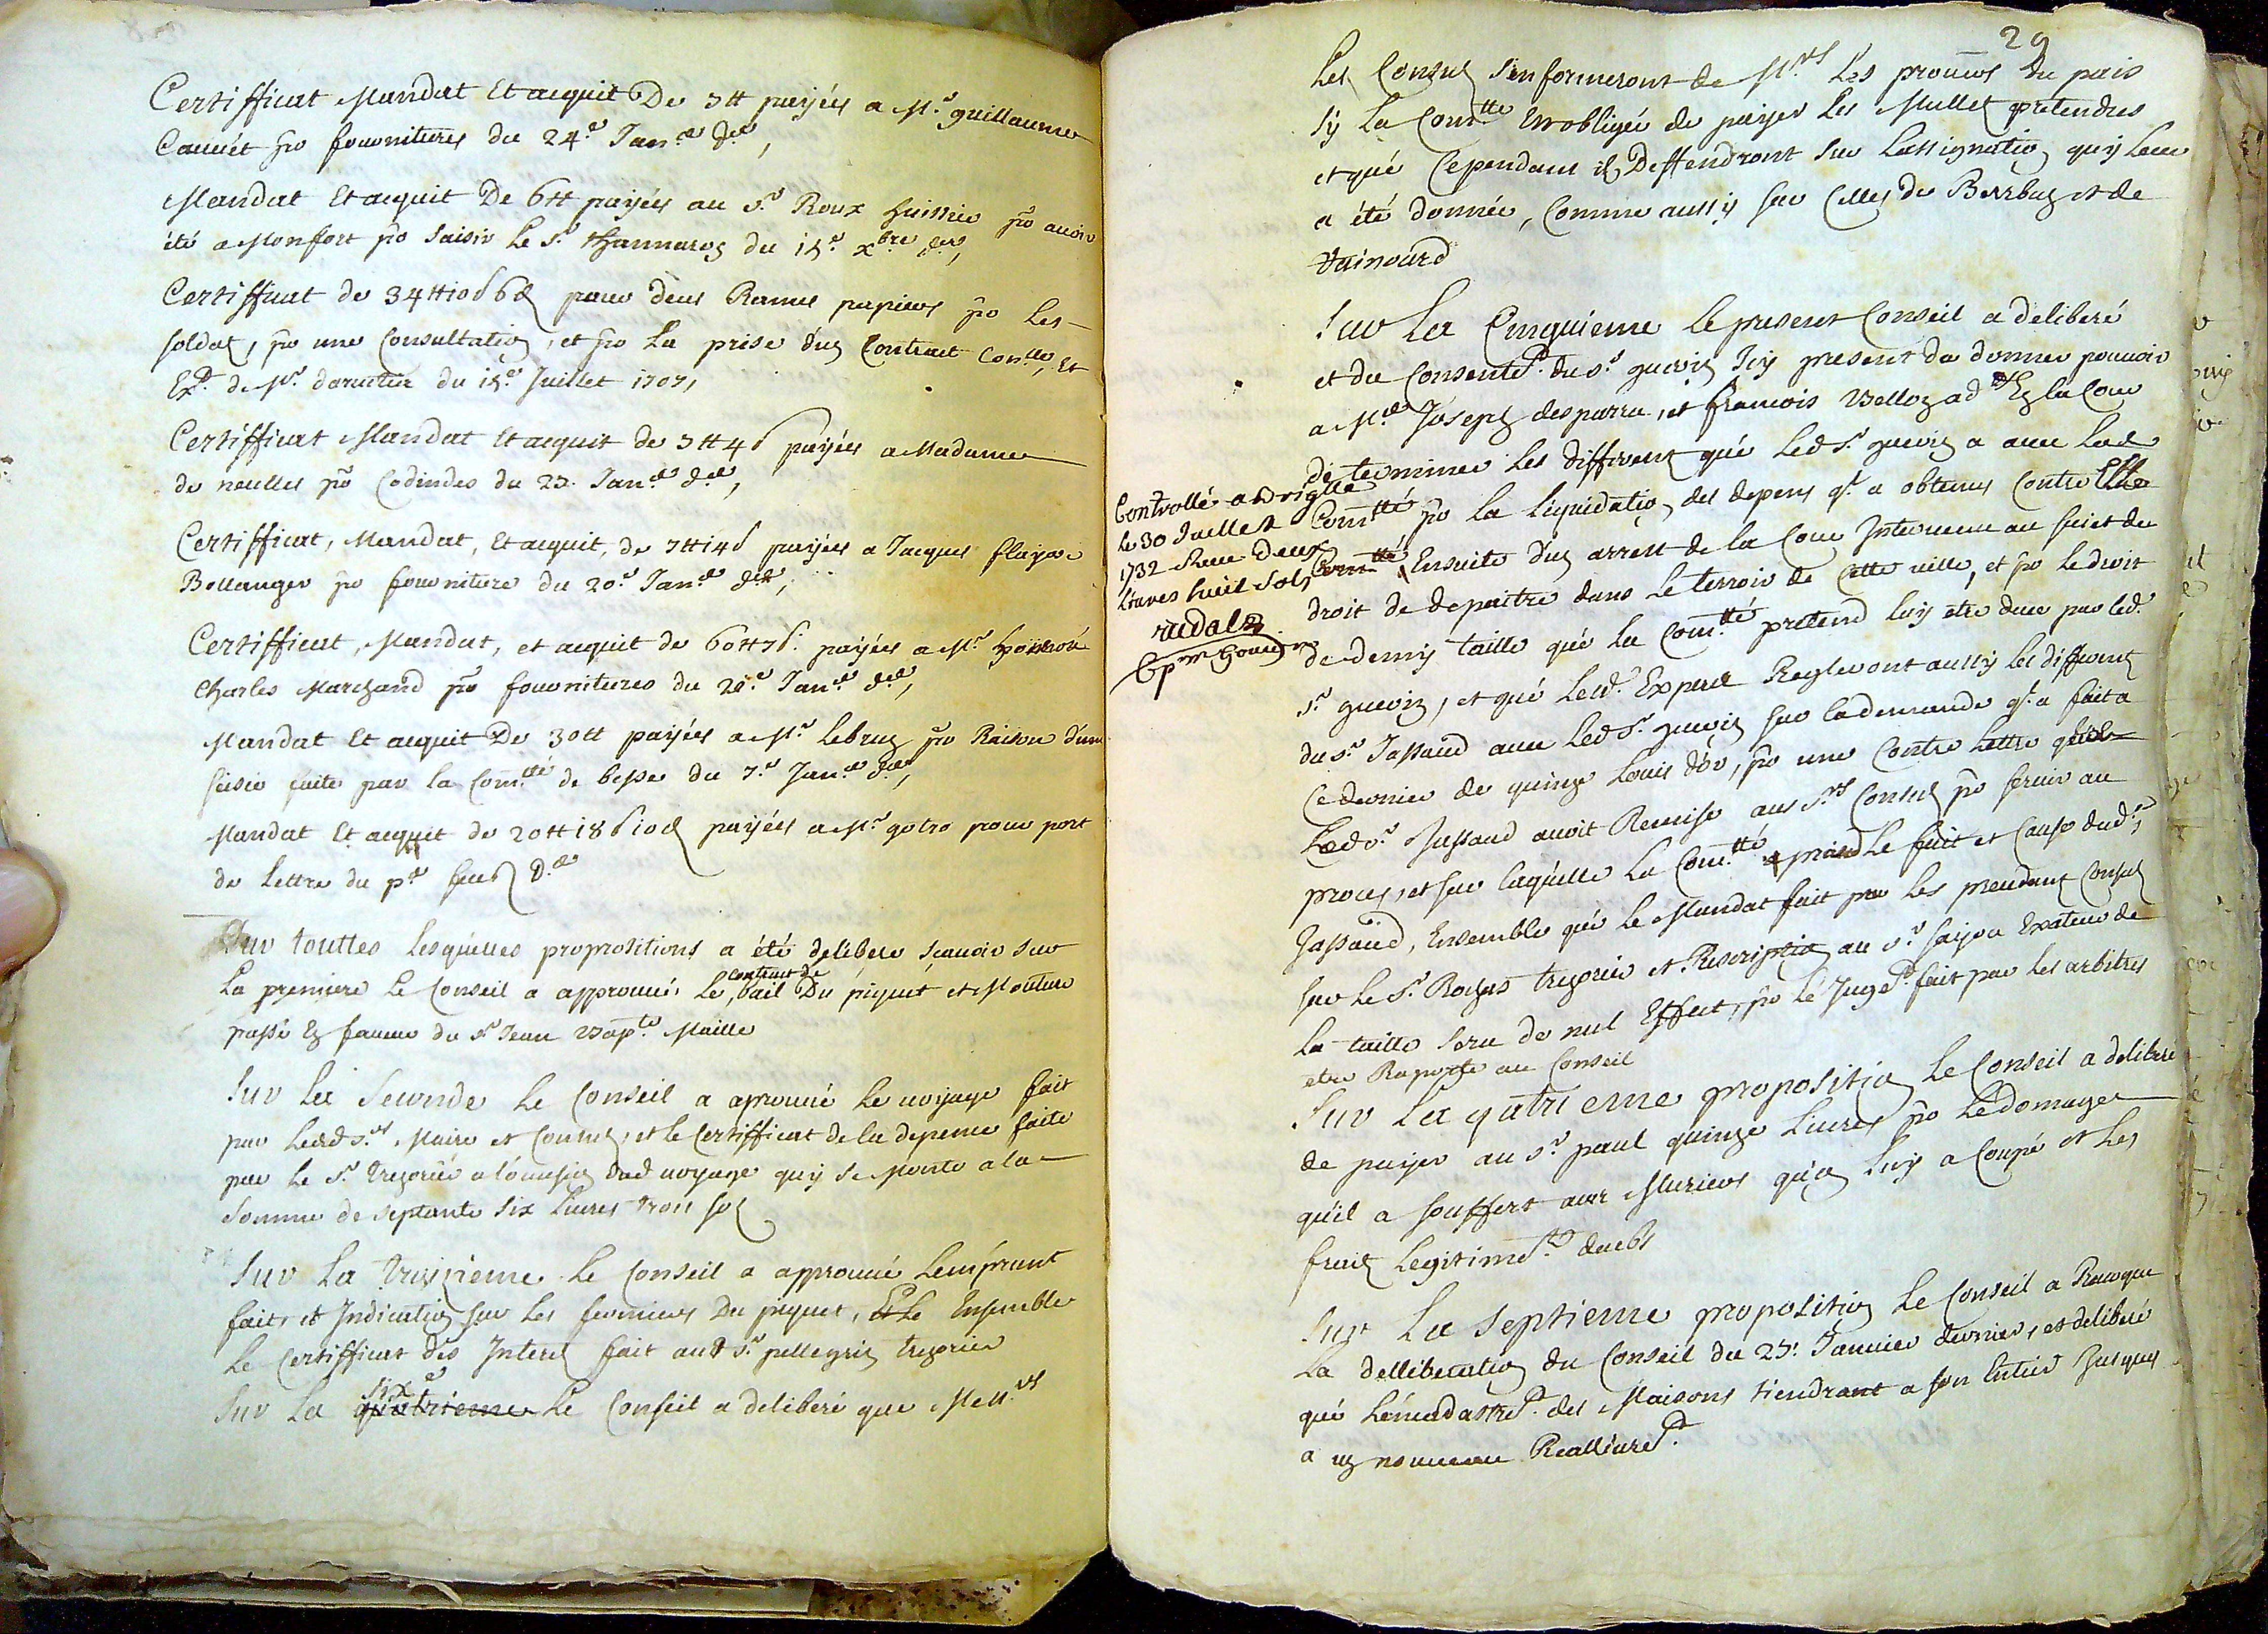 Certifficat Mandat Et acquit De 3tt payées a Mr guillaume
Cauvét po fournitures du 24e Janer der,
Mandat Et acquit De 6tt payées au sr Roux huissier po avoir
été a Monfort po saisir le sr du 15e xbre der,
Certifficat de 34tt10s6d pour deux Rames papiers po Les
soldats, po une Consultation, et po La prise d'un Contract Comtte, Et
Expt de Mr du 15e Juillet 1707,
Certifficat Mandat Et acquit de 3tt4s payées a Madame
de neulles po Codindes du 23. Janer der,
Certifficat, Mandat, Et acquit, de 7tt14s payées a Jacques flayose
Boullanger po fourniture du 20e Janer der,
Certifficat, Mandat, et acquit de 60tt7s. payées a Mr honnoré
Charles Marchand po fournitures du 20e Janer der,
Mandat Et acquit De 30tt payées a Mr Lebrun po Raison d'une
saisie faite par la Comtté de besse du 7e Janer der,
Mandat Et acquit de 20tt18s10d payées a Mr gotro pour port
de Lettre du pr feur Der
Sur touttes Lesquelles propositions a été delibere scauoir sur
La premiere Le Conseil a approuué Le contract de bail Du piquet et Mouture
passé En faueur du sr Jean Bapte Maille
Sur La Seconde Le Conseil a aprouué Le uoyage fait
par Lesd srs Maire et Consuls, et le Certifficat de la depence faite
par le sr trezorier a l'ocasion dud uoyage quy se Monte a la
Somme de septante six Liures trois sols
Sur La troisieme Le Conseil a approuué Lemprunt
fait, et Indication sur Les fermiers Du piquet, Et Le Ensemble
Le Certifficat des Interets fait aud sr pellegrin trezorier
Sur La quatrieme sixe Le Conseil a deliberé que Messrs
29
Les Consuls s'informeront de Mrs Les procurs Du pais
sy La Comtte Est obligée de payer Les Mulets pretendus
et qué Cependant ils Deffendront sur Lassignation quy Leur
a été donnée, Comme aussy sur Celles de Barrbus et de
Vainourd
Sur La Cinquieme Le present Conseil a deliberé
et du Consentemt du sr guerin Icy present de donner pouuoir
a Mes Joseph desparra, et francois Bellon adts En la Cour
de terminer Les differents qué Led sr guerin a auec Lad
Comtté po La Liquidation des depens qt a obtenus Contre Elle
Comtté Ensuite d'un arrest de la Cour Interuenu au sujet du
droit de depaitre dans Le terroir de Cette uille, et po Le droit
de demy taille qué La Comtté pretend luy etre deue par led.
sr guerin, et qué Lesd. Experts Regleront aussy Les differents
du sr Jassaud auec Led sr guerin sur la demande qt a fait a
Ce dernier de quinze Louis d'or, po une Contre Lettre
Led sr Jassaud auoit Remise aux srs Consuls po seruir au
proces, et sur Laquelle La Comtté prand Le fait et Cause dud sr
Jassaud, Ensemble qué Le Mandat fait par Les Consuls
sur Le sr Rogas trezorier et Rescription au sr Exateur de
La taille sera de nul Effect, po Le Jugemt fait par Les arbitres
etre Raporte au Conseil
Sur La quatrieme proposition Le Conseil a deliberé
de payer au sr paul quinze Liures po Le domage
qu'il a souffert aux Muriers qu'on Luy a Coupé et Les
fruits Legitimemt deubs
Sur La Septieme proposition Le Conseil a Reuoqué
La dellibération du Conseil du 23e Januier dernier, et deliberé
qué Lencadastremt des Maisons tiendront a son Entier Jusques
a un nouueau Realliuremt
Controllé a Brigtte
Le 30 Juillet
1732 Reçu deux
Liures huit sols